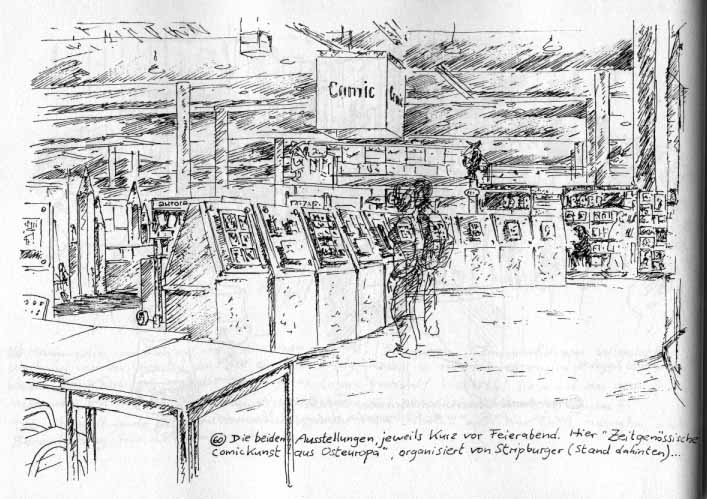 Comic
aurora
60 Die beiden Ausstellungen, jeweils kurz vor Feierabend. Hier "Zeitgenössische
ComicKunst aus Osteuropa", organisiert von Stripburger (Stand dahinten)...